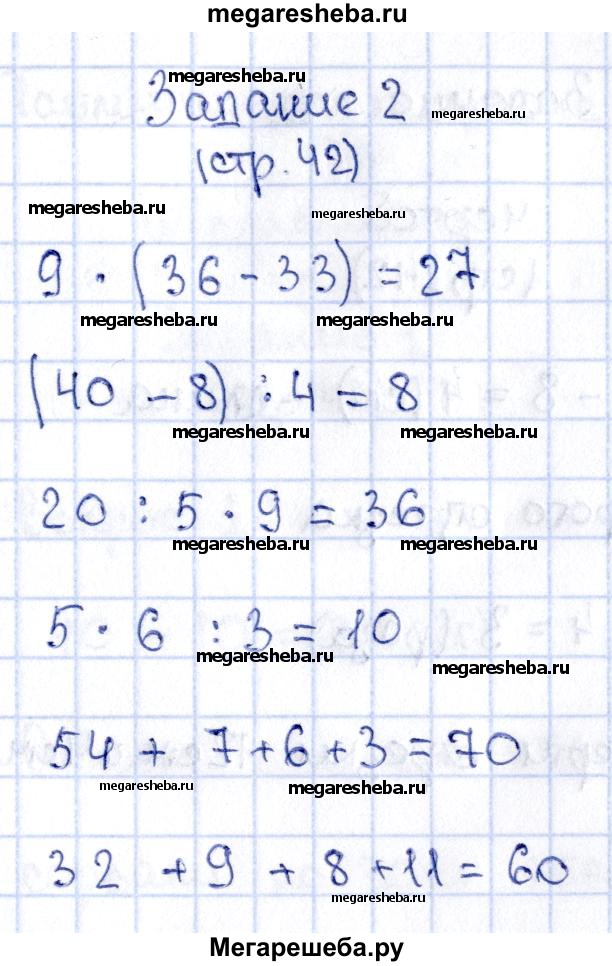 megaresheba.ru
megaresheba.ru
Запание 2 megaresheba.ru
(стр. 42)
megaresheba.ru megaresheba.ru
9 · (36 - 33) = 27
megaresheba.ru megaresheba.ru
(40 - 8) : 4 = 8
megaresheba.ru megaresheba.ru
20 : 5 · 9 = 36
megaresheba.ru megaresheba.ru
5 · 6 : 3 = 10
megaresheba.ru megaresheba.ru
54 + 7 + 6 + 3 = 70
megaresheba.ru megaresheba.ru
32 + 9 + 8 + 11 = 60
megaresheba.ru
Мегарешеба.ру